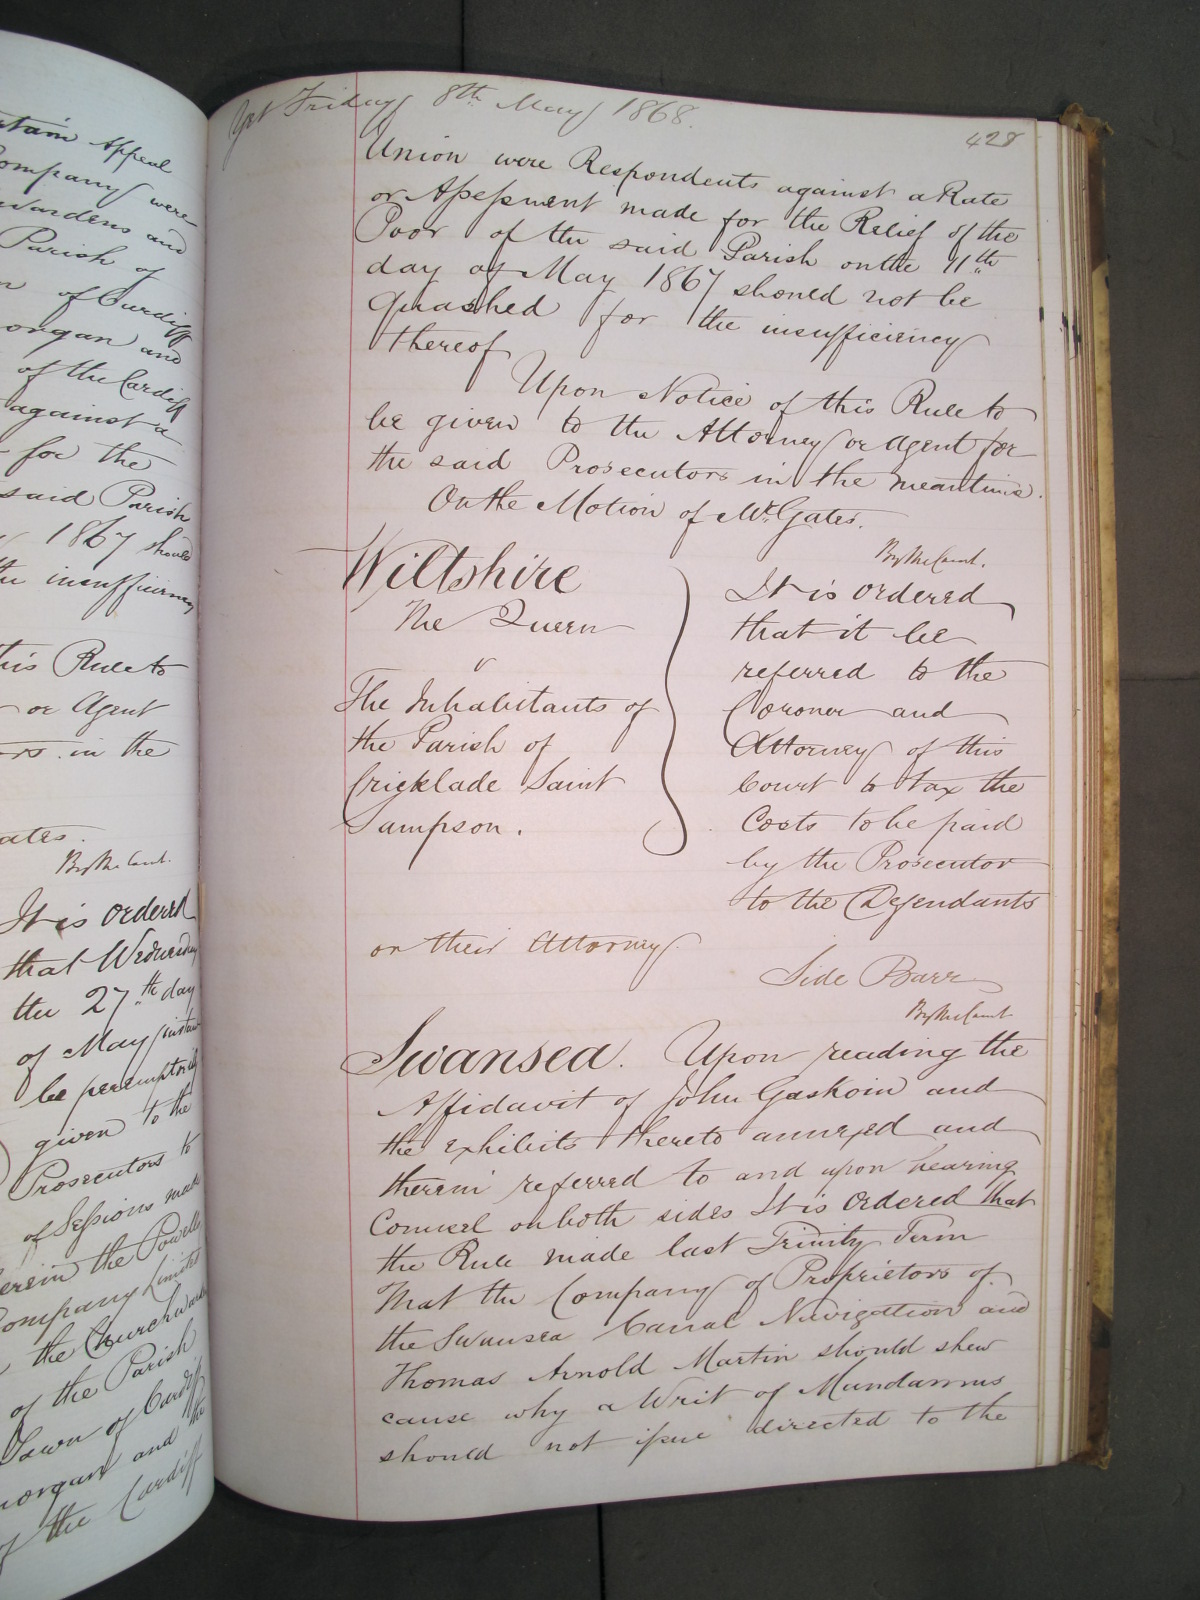 rtain Appeal
Company were
wardens and
Parish of
n of Cardiff
organ and
of the Cardiff
against a
for the
said Parish
1867 should
the insufficiency
this Rule to
or Agent
rs in the
ates.
By the Court.
It is ordered
that Wednesday
the 27th day
of May instant
be peremptorily
given to the
Prosecutors to
of Sessions made
herein the Powell
Company Limited
the Churchwardens
of the Parish
Town of Cardiff
morgan and the
of the Cardiff
Yet Friday 8th May 1868.
428
Union were Respondents against a Rate
or Assessment made for the Relief of the
Poor of the said Parish on the 11th
day of May 1867 should not be
Quashed for the insufficiency
thereof
Upon Notice of this Rule to
be given to the Attorney or Agent for
the said Prosecutors in the meantime.
On the Motion of Mr. Gates.
By the Court.
Wiltshire
The Queen
v
The Inhabitants of
the Parish of
Cricklade Saint
Sampson.
It is ordered
that it be
referred to the
Coroner and
Attorney of this
Court to tax the
Costs to be paid
by the Prosecutor
to the Defendants
or their Attorney.
Side Barr
By the Court
Swansea. Upon reading the
Affidavit of John Gaskoin and
the exhibits thereto annexed and
therein referred to and upon hearing
Counsel on both sides It is ordered that
the Rule made last Trinity Term
That the Company of Proprietors of
the Swansea Canal Navigation and
Thomas Arnold Martin should shew
cause why a Writ of Mandamus
should not issue directed to the